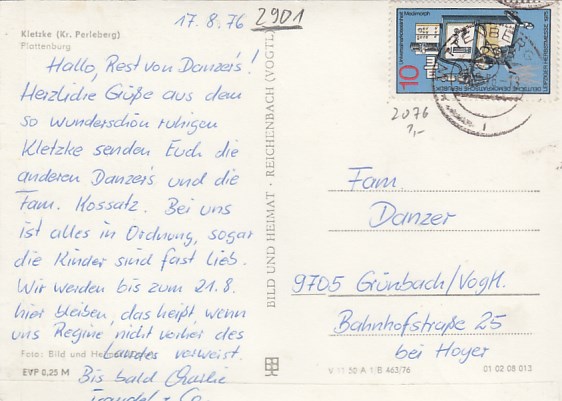 17.8.76
2901
Kletzke (Kr. Perleberg)
Plattenburg
Hallo, Rest von Danzer's!
Herzliche Grüße aus dem
so wunderschön ruhigen
Kletzke senden Euch die
anderen Danzer's und die
Fam. Kossatz. Bei uns
ist alles in Ordnung, sogar
die Kinder sind fast lieb.
Wir werden bis zum 21.8.
hier bleiben, das heißt, wenn
uns Regine nicht vorher des
Landes verweist.
Foto: Bild und Heimat
EVP 0,25 M
Bis bald Charlie
BILD UND HEIMAT · REICHENBACH (VOGTL)
10
DEUTSCHE DEMOKRATISCHE REPUBLIK
2076
1,-
Fam.
Danzer
9705 Grünbach/Vogtl.
Bahnhofstraße 25
bei Hoyer
V 11 50 A 1/B 463/76
01 02 08 013